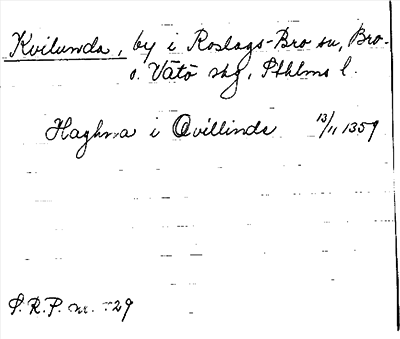 Kvilunda, by i Roslags-Bro sn, Bro-
o. Vätö skg, Sthlms l.
Haghma i Qvillinde 13/11 1359
S.R.P. nr. 729